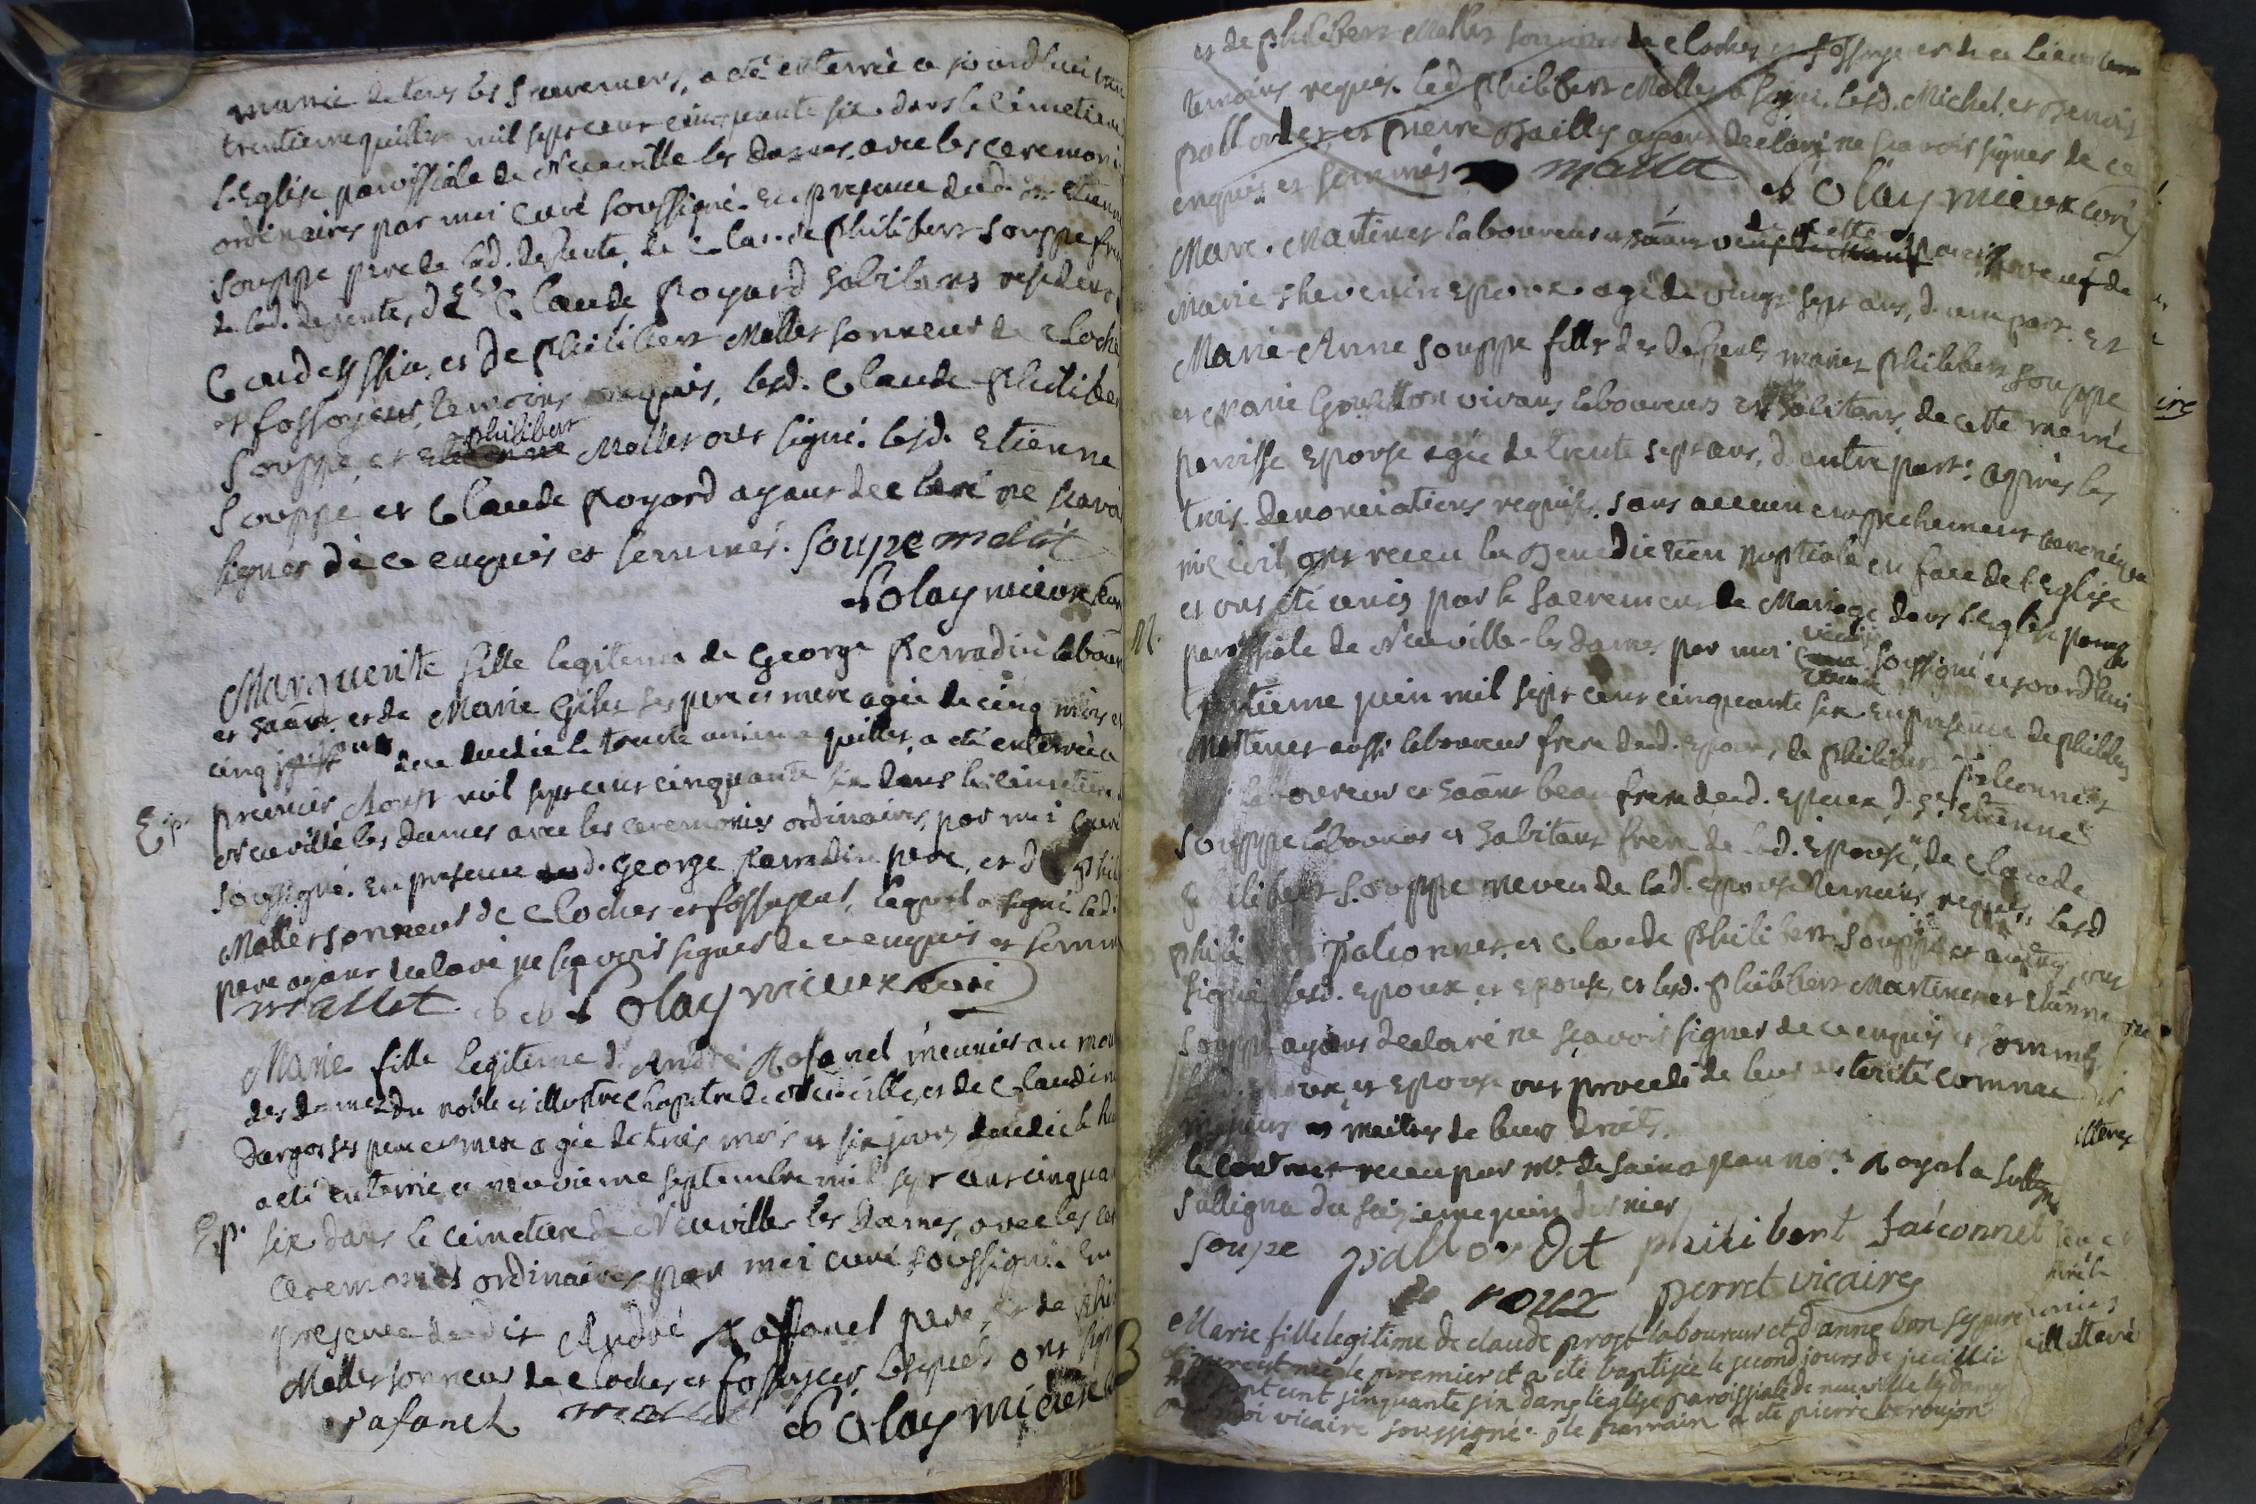 munie de tous les sacremens, a été enterrée ce jourdhui
trentieme juillet mil sept cent cinquante six dans le cimetiere
l'Eglise paroissiale de Neuville les dames, avec les ceremonies
ordinaires par moi Curé soussigné. En presence dud. Etienne
Souppe pere de lad. defunte, de Philibert Souppe frere
de lad. defunte, de Claude Poyard habitans
et de Philibert Mallet sonneur de cloche
et fossoyeur, temoins requis, lesd. Claude Philibert
Souppe, et philibert Mallet ont signé. lesd. Etienne
Souppe et Claude Poyard ayant declaré ne scavoir
signer de ce enquis et sommés. Soupe mallet
Polaymieux curé
Marguerite fille legitime de George Perradin
et de Marie ses pere et mere agée de cinq mois et
cinq jours le trente juillet, a été enterrée ce
premier Aoust mil sept cent cinquante six dans le cimetiere
Ep.
Neuville les dames avec les ceremonies ordinaires, par moi curé
soussigné. En presence dud. George Perradin pere, et de
Mallet sonneur de cloches et fossoyeur, lequel a signé led.
pere ayant declaré ne sçavoir signer de ce enquis et sommé
mallet Polaymieux curé
Marie fille legitime d'André Rafanel meunier au
des dames du noble et illustre Chapitre de Neuville, et de Claudine
Dargot ses pere et mere agée de trois mois et six jours
a été enterrée ce neuvieme septembre mil sept cent cinquante
Ep.
six dans le cimetiere de Neuville les Dames, avec les
Ceremonies ordinaires par moi curé soussigné. En
presence dudit André Raffanel pere, et de
Mallet sonneur de cloches et fossoyeur lesquels ont
rafanel mallet Polaymieux
et de Philibert Mallet sonneur de cloches et fossoyeur de ce lieu
temoins requis. led. Philibert Mallet a signé. lesd. Michel et Benoit
pallordet, et Pierre Bailly ayant declaré ne scavoir signer de ce
enquis et sommés mallet Polaymieux curé
Marc Martinet laboureur de cette paroisse veuf de
Marie Thevenin Epoux agé de vingt sept ans, d'une part. Et
Marie-Anne Souppe fille des defunts mariés Philibert Souppe
et Marie vivans laboureurs et habitans de cette meme
paroisse Epouse agée de trente sept ans, d'autre part: après les
trois denonciations requises, sans aucun empechement canonique
ni civil, ont receu la Benediction nuptiale en face de l'Eglise
et ont été unis par le Sacrement de Mariage dans l'eglise
M.
paroissiale de Neuville-les dames par moi vicaire soussigné cejourd'hui
trentieme juin mil sept cent cinquante six. En presence de Philibert
Martinet aussi laboureur frere dud. Epoux, de Philibert Falconnet
laboureur beau frere dud. Epoux, d'Etienne
Souppe laboureur et habitant frere de lad. Epouse, de Claude
Philibert Souppe neveu de lad. epouse temoins requis. Lesd
Philibert Falconnet, et Claude Philibert Souppe et autres, ont
signé lesd. Epoux et Epouse, et lesd. Philibert Martinet et Etienne
Souppe ayans declaré ne sçavoir signer de ce enquis et sommés
Epoux et Epouse ont procedé de leur autorité comme
majeurs et maitres de leurs droits.
le contract receu par Mr. de
du seizieme juin dernier
Soupe pallordet philibert falconnet
roux perret vicaire
Marie fille legitime de claude prost laboureur et d'anne bon ses pere
et mere est née le premier et a été baptisée le second jours de juillet
mil sept cent cinquante six dans l'eglise paroissiale de neuville les dames
par moi vicaire soussigné. le parrain a été pierre